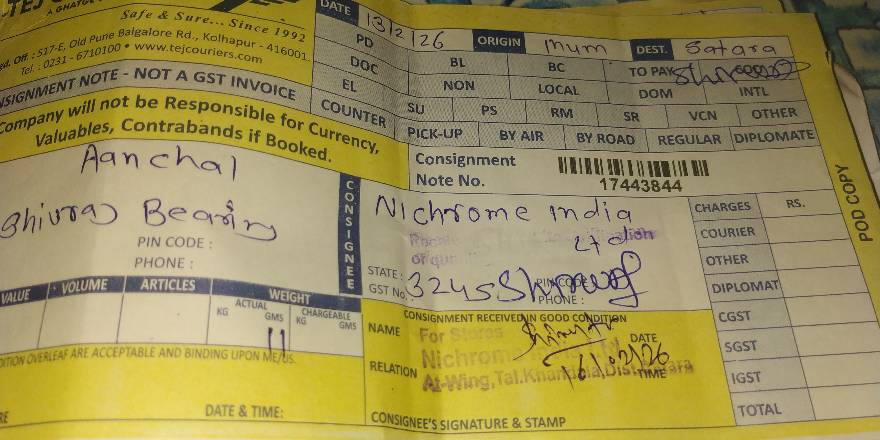 Safe & Sure... Since 1992
Off.: 517-E, Old Pune Balgalore Rd., Kolhapur - 416001.
Tel.: 0231 - 6710100 • www.tejcouriers.com
NSIGNMENT NOTE - NOT A GST INVOICE
Company will not be Responsible for Currency,
Valuables, Contrabands if Booked.
DATE 13/2/26 ORIGIN Mum DEST. Satara
PD BL BC TO PAY
DOC NON LOCAL DOM INTL
EL SU PS RM SR VCN OTHER
COUNTER PICK-UP BY AIR BY ROAD REGULAR DIPLOMATE
Consignment
Note No. 17443844
Aanchal
Shivraj Bearing
PIN CODE :
PHONE :
CONSIGNEE
Nichrome india
Ltd
STATE :
GST No. 3245
PIN CODE :
PHONE :
CHARGES RS.
COURIER
OTHER
DIPLOMAT
CGST
SGST
IGST
TOTAL
POD COPY
VALUE VOLUME ARTICLES WEIGHT
ACTUAL CHARGEABLE
KG GMS KG GMS
DITION OVERLEAF ARE ACCEPTABLE AND BINDING UPON ME/US.
DATE & TIME:
CONSIGNMENT RECEIVED IN GOOD CONDITION
NAME For Stores DATE
Nichrom 16/02/26
RELATION At-Wing, Tal. Khandala, Dist. Satara TIME
CONSIGNEE'S SIGNATURE & STAMP